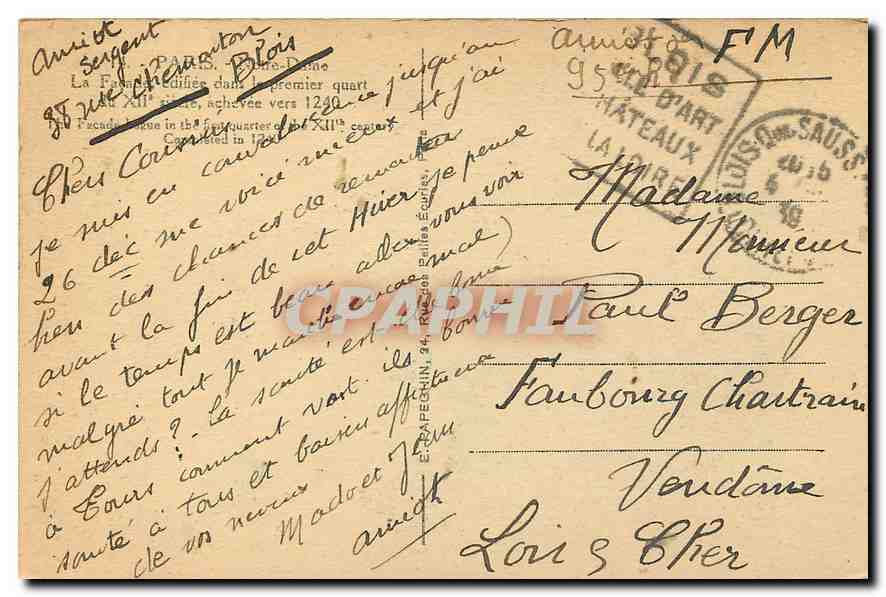 Amiot
Sergent
38 rue Chemonton
Blois
PARIS. - Notre-Dame
La Façade édifiée dans le premier quart
du XIIe siècle, achevée vers 1240
The Facade begun in the first quarter of the XIIth century
Completed in 1240
Chers Cousins
je suis en convalescence jusqu'au
26 déc me voici mieux et j'ai
bien des chances de remonter
avant la fin de cet Hiver je pense
si le temps est beau aller vous voir
malgré tout je marche encore mal)
j'attends? - La santé est elle bonne
à Tours: comment vont-ils bonne
santé à tous et baisers affectueux
de vos neveux
Mado et Jean
Amiot
E. PAPEGHIN, 34, Rue des Petites Ecuries, Paris
Amiot
95 R I
FM
BLOIS
VILLE D'ART
CHATEAUX
LA LOIRE
BLOIS-Qu SAUSS
39
Madame
Monsieur
Paul Berger
Faubourg Chartrain
Vendôme
Loir & Cher
CPAPHIL